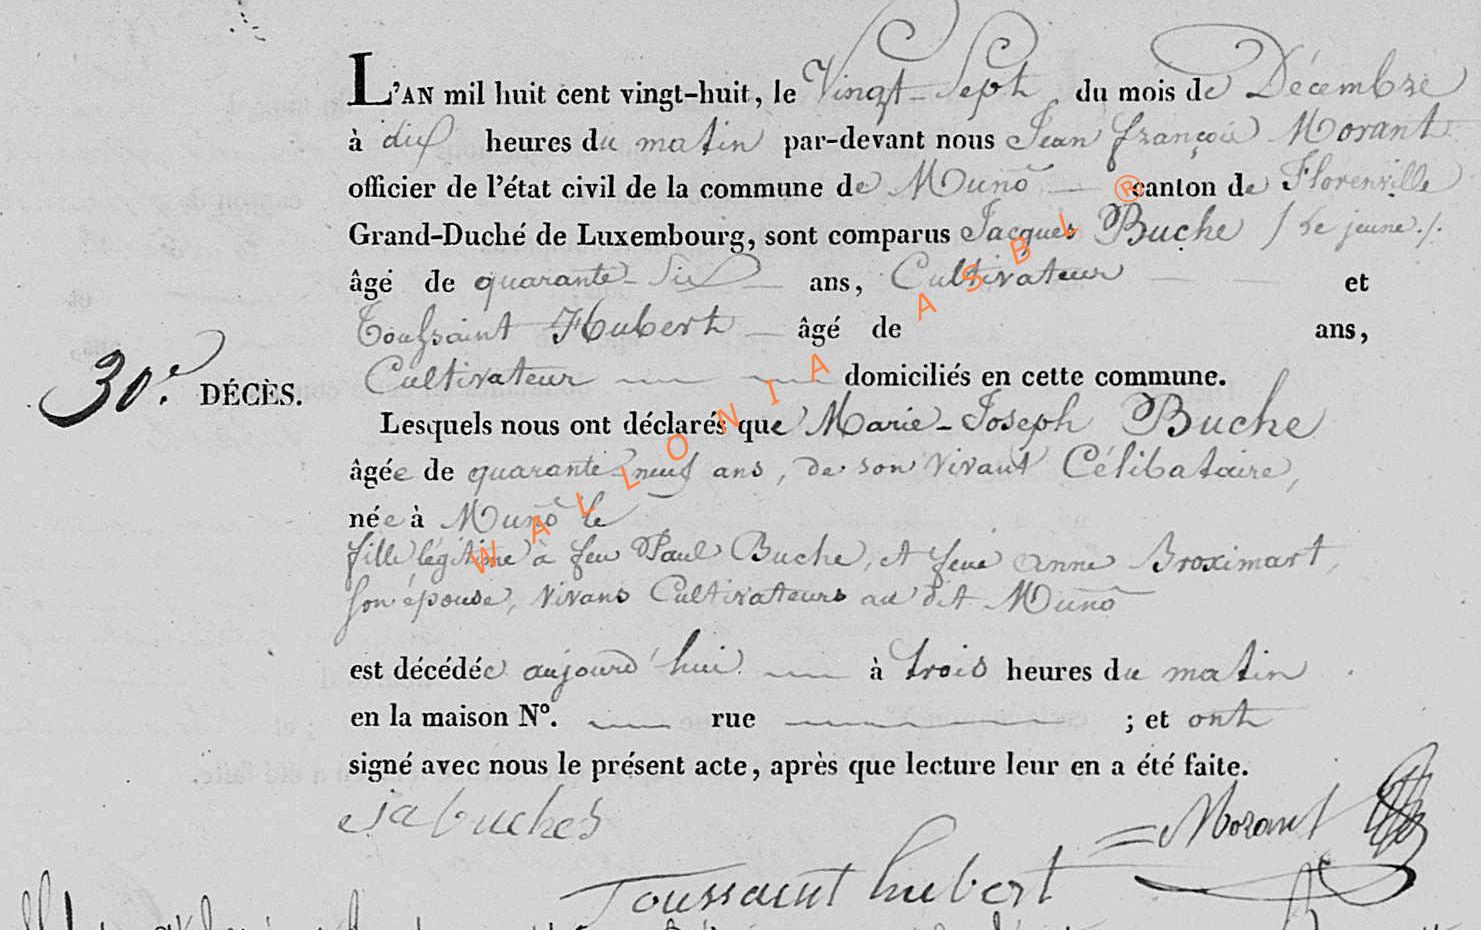 L'AN mil huit cent vingt-huit, le Vingt-Sept du mois de Décembre
à dix heures du matin par-devant nous Jean françois Morant
officier de l'état civil de la commune de Muno canton de Florenville
Grand-Duché de Luxembourg, sont comparus Jacques Buche / le jeune./.
âgé de quarante-Six ans, Cultivateur et
Toussaint Hubert âgé de ans,
Cultivateur domiciliés en cette commune.
30.e DÉCÈS.
Lesquels nous ont déclarés que Marie-Joseph Buche
âgée de quarante neuf ans, de son vivant Célibataire,
née à Muno le
fille légitime à feu Paul Buche, et feue anne Broximart,
son épouse, vivans Cultivateurs au dit Muno
est décédée aujourd'hui à trois heures du matin
en la maison N°. rue ; et ont
signé avec nous le présent acte, après que lecture leur en a été faite.
ja buches
Morant
Toussaint hubert
WALLONIA ASBL ®